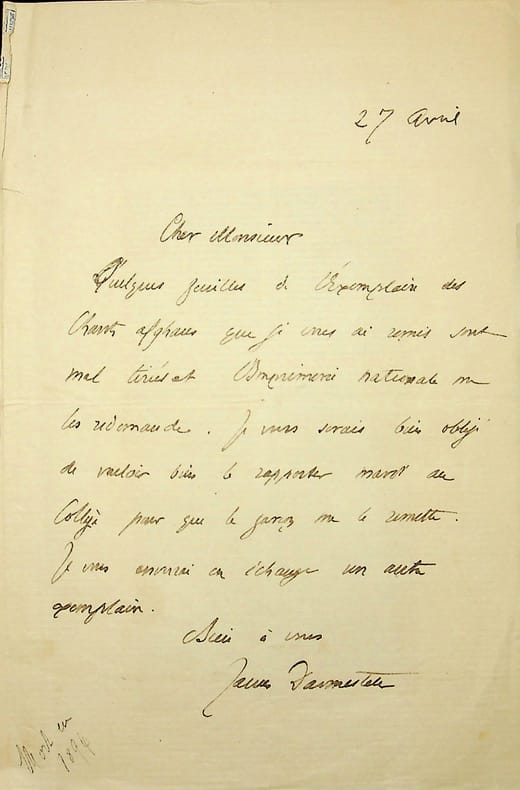 27 Avril
Cher Monsieur
Quelques feuilles de l'Exemplaire des
Chants afghans que je vous ai remis sont
mal tirés et l'Imprimerie nationale me
les redemande. Je vous serais bien obligé
de vouloir bien le rapporter mardi au
Collège pour que le garçon me le remette.
Je vous enverrai en échange un autre
exemplaire.
Bien à vous
James Darmesteter
Mort en
1894